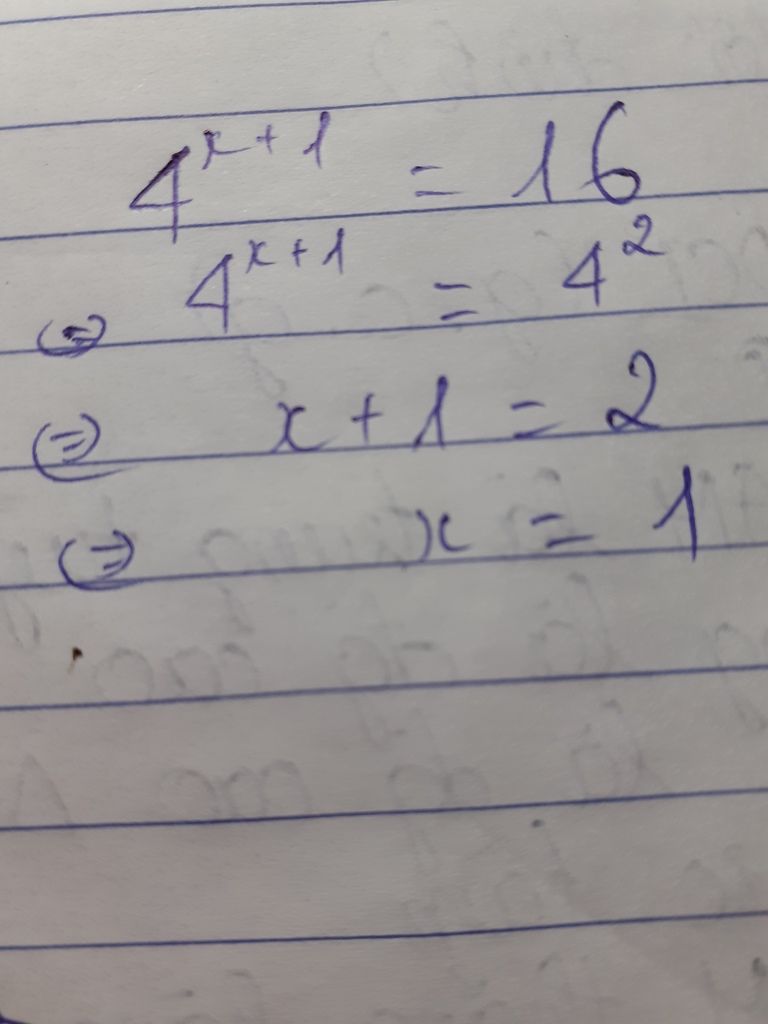 4^{x+1} = 16
⇔ 4^{x+1} = 4^2
⇔ x + 1 = 2
⇔ x = 1